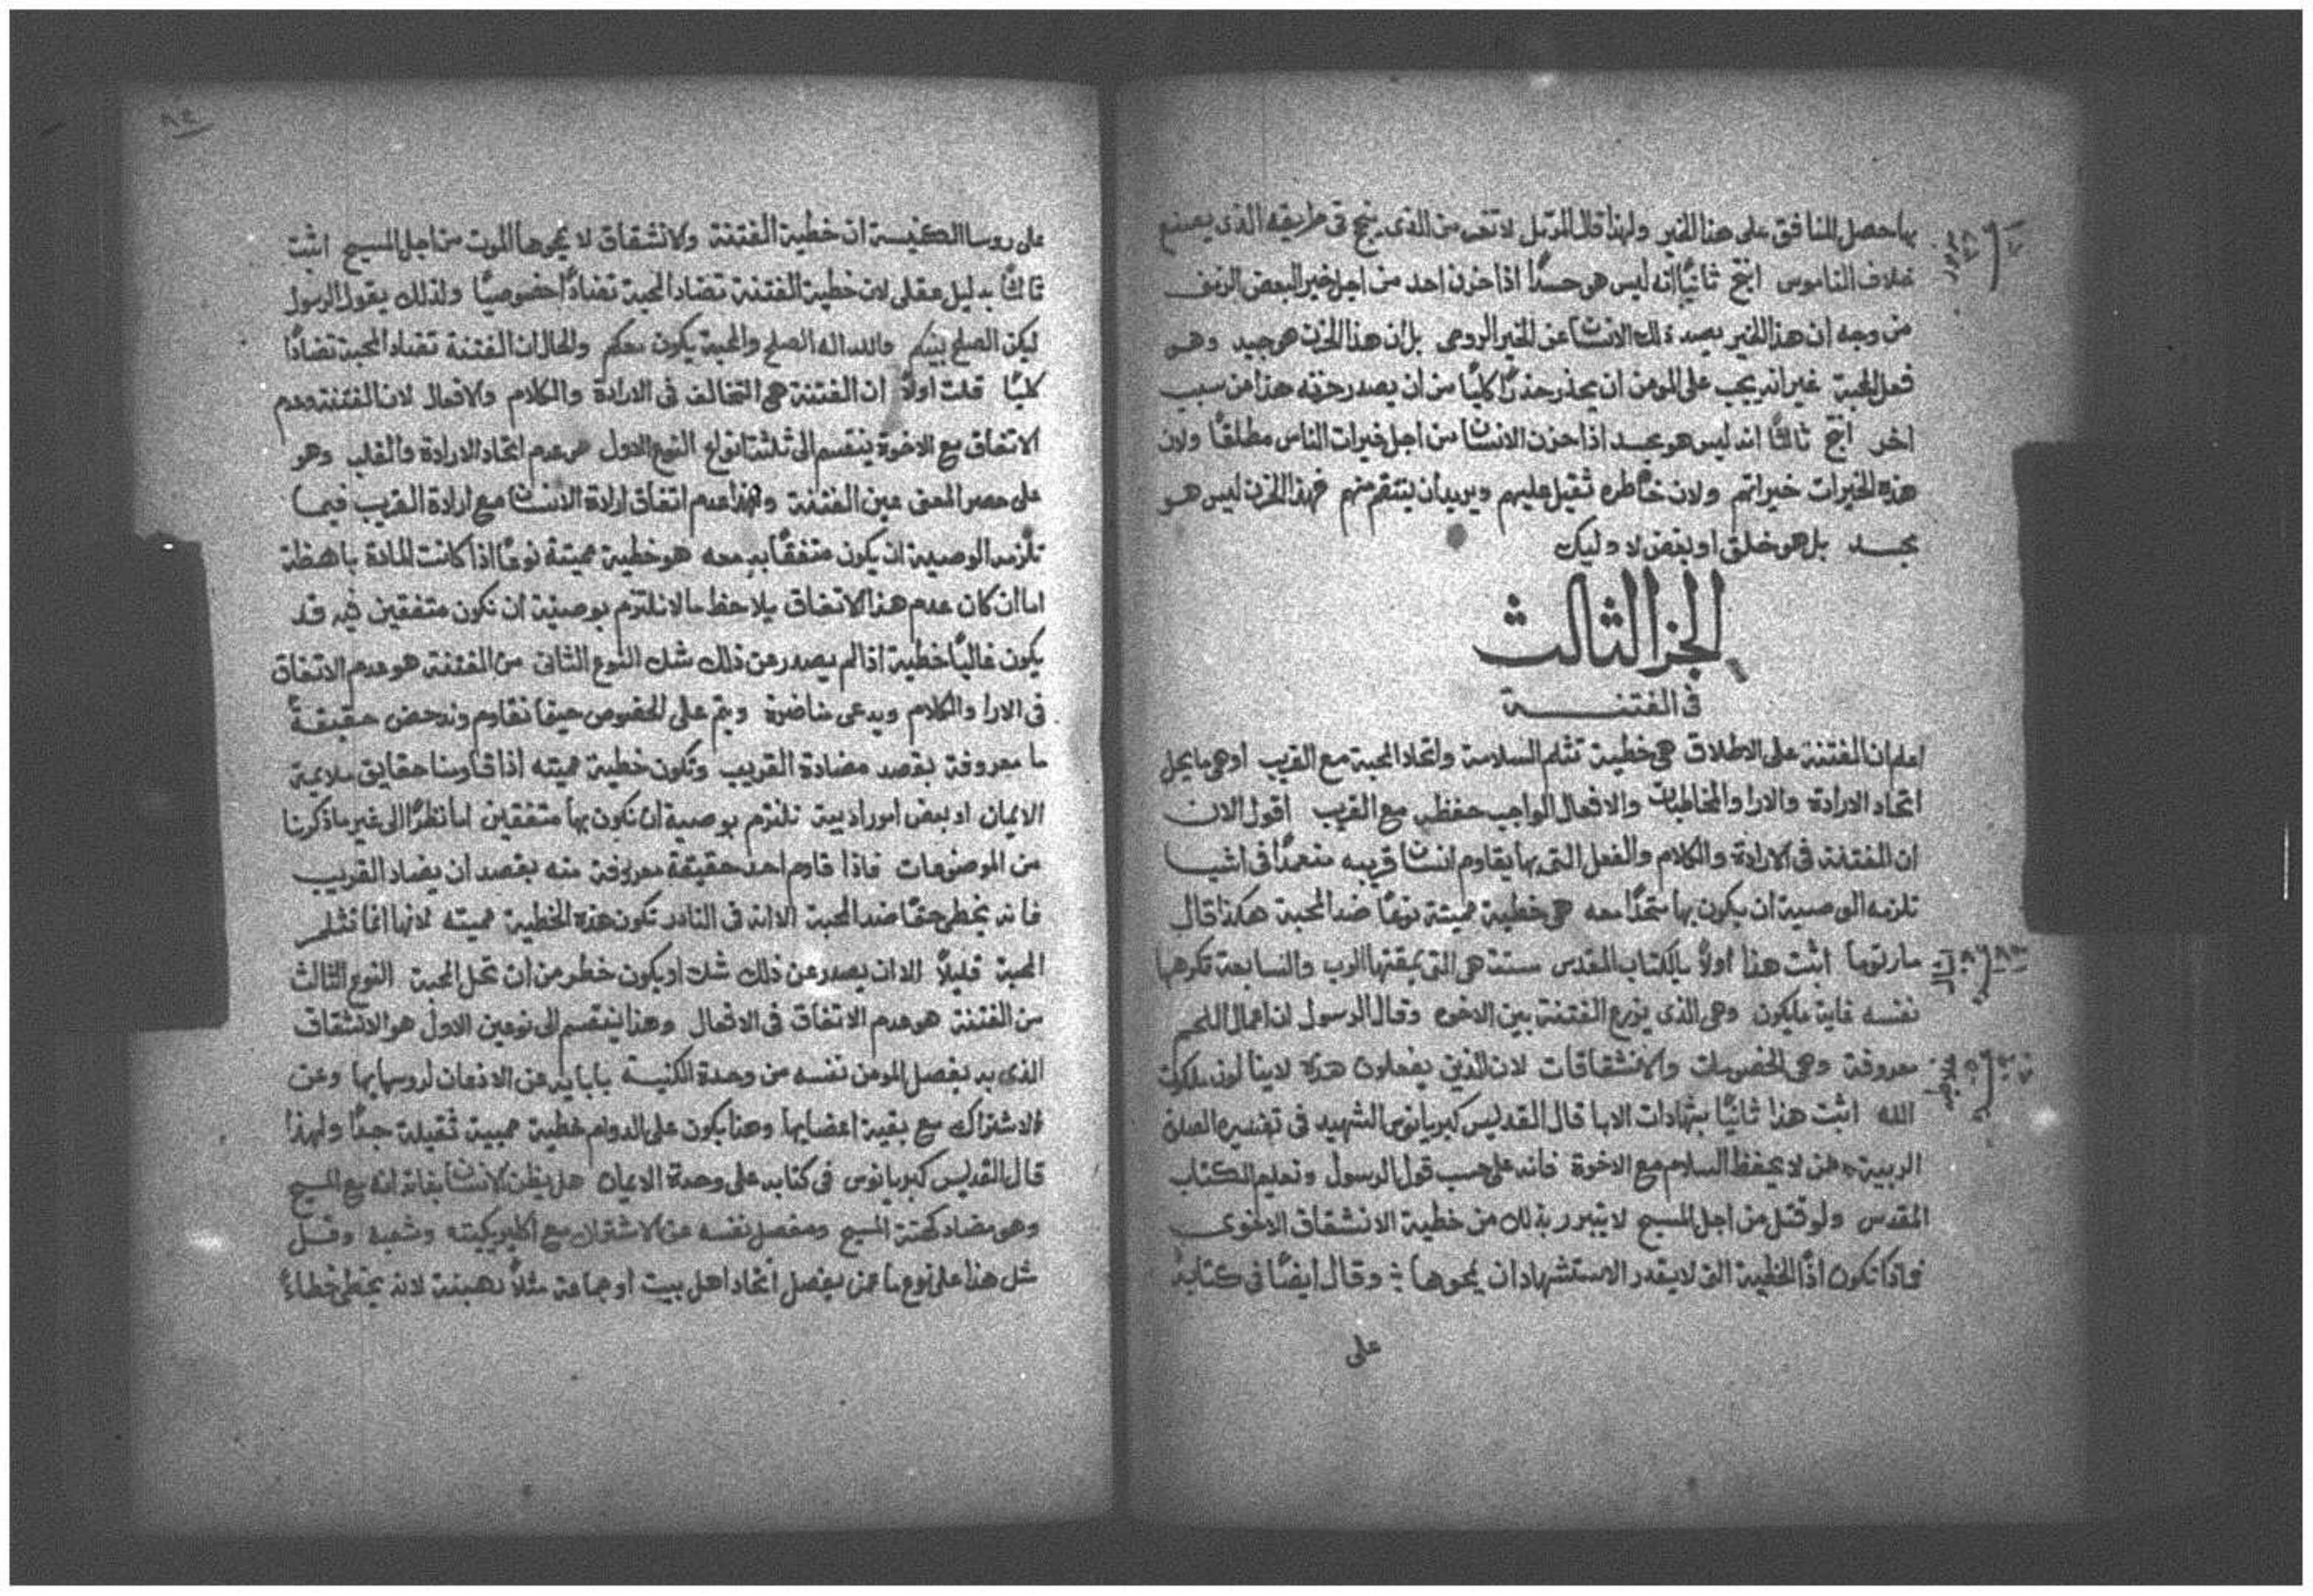 بها حصل المنافق على هذا الخير ولهذا قال المرتل لا تغر من الذي ينجح في طريقه الذي يصنع
خلاف الناموس انتج ثانيًا انه ليس هو حسدًا اذا حزن احد من اجل خير البعض الزمني
من وجه ان هذا الخير يصد ذلك الانسان عن الخير الروحي بل ان هذا الحزن هو جيد وهو
فعل المحبة غير انه يجب على المومن ان يحذر حذرًا كليًا من ان يصدر حزنه هذا من سبب
اخر انتج ثالثًا انه ليس هو بحسد اذا حزن الانسان من اجل خيرات الناس مطلقًا ولان
هذه الخيرات خيراتهم ولان خاطره ثقيل عليهم ويريد ان ينتقم منهم فهذا الحزن ليس هو
بحسد بل هو خلق او بغض لاوليك
الجز الثالث
في الفتنة
اعلم ان الفتنة على الاطلاق هي خطية تثلم السلامة واتحاد المحبة مع القريب او هي ما يحل
اتحاد الارادة والارا والمخاطبات والافعال الواجب حفظه مع القريب اقول الان
ان الفتنة في الارادة والكلام والفعل التي بها يقاوم انسان قريبه متعمدًا في اشيا
تلزمه الوصية ان يكون بها متحدًا معه هي خطية مميتة نوعًا ضد المحبة هكذا قال
مار توما اثبت هذا اولًا بالكتاب المقدس ستة هي التي يمقتها الرب والسابعة تكرهها
نفسه غاية مايكون وهي الذي يزرع الفتنة بين الاخوه وقال الرسول ان اعمال اللحم
معروفة وهي الخصومات والانشقاقات لان الذين يفعلون هذه لا ينالون ملكوت
الله اثبت هذا ثانيًا بشهادات الابا قال القديس كبريانوس الشهيد في تفسيره الصلوة
الربية من لا يحفظ السلام مع الاخوة فانه على حسب قول الرسول وتعليم الكتاب
المقدس ولو قتل من اجل المسيح لا يتبرر بذلك من خطية الانشقاق الاخوي
فماذا تكون اذًا الخطية التي لا يقدر الاستشهاد ان يمحوها وقال ايضًا في كتابه
على
على روسا الكنيسة ان خطية الفتنة والانشقاق لا يمحوها الموت من اجل المسيح اثبت
ثالثًا بدليل عقلي لان خطية الفتنة تضاد المحبة تضادًا خصوصيًا ولذلك يقول الرسول
ليكن الصلح بينكم والله اله الصلح والمحبة يكون معكم والحال ان الفتنة تضاد المحبة تضادًا
كليًا قلت اولًا ان الفتنة هي التخالف في الارادة والكلام والافعال لان الفتنة وعدم
الاتفاق مع الاخوة ينقسم الى ثلثة انواع النوع الاول هو عدم اتحاد الارادة والقلب وهو
على حصر المعنى عين الفتنة وهذا عدم اتفاق ارادة الانسان مع ارادة القريب فيما
تلزمه الوصية ان يكون متفقًا به معه هو خطية مميتة نوعًا اذا كانت المادة باهظة
اما ان كان عدم هذا الاتفاق يلاحظ ما لا نلتزم بوصية ان نكون متفقين فيه قد
يكون غالبًا خطية اذا لم يصدر عن ذلك شك النوع الثاني من الفتنة هو عدم الاتفاق
في الارا والكلام ويدعى مناضرة ويتم على الخصوص حينما نقاوم وندحض حقيقةً
ما معروفة بقصد مضادة القريب وتكون خطية مميته اذا قاومنا حقايق ملايمة
الايمان او بعض امور ادبية نلتزم بوصية ان نكون بها متفقين اما نظرًا الى غير ما ذكرنا
من الموضوعات فاذا قاوم احد حقيقة معروفة منه بقصد ان يضاد القريب
فانه يخطي حقًا ضد المحبة الا انه في النادر تكون هذه الخطية مميته لانها انما تثلم
المحبة قليلًا الا ان يصدر عن ذلك شك او يكون خطر من ان تحل المحبة النوع الثالث
من الفتنة هو عدم الاتفاق في الافعال وهذا ينقسم الى نوعين الاول هو الانشقاق
الذي به يفصل المومن نفسه من وحدة الكنيسة بابايه عن الاذعان لروسايها وعن
الاشتراك مع بقية اعضايها وهذا يكون على الدوام خطية مميتة ثقيلة جدًا ولهذا
قال القديس كبريانوس في كتابه على وحدة الايمان هل يظن الانسان بذاته انه مع المسيح
وهو مضاد كهنة المسيح ومفصل نفسه عن الاشتراك مع اكليريكيته وشعبه وقل
مثل هذا على نوع ما عمن يفصل اتحاد اهل بيت او جماعة مثلًا رهبنة لانه يخطي خطاءً